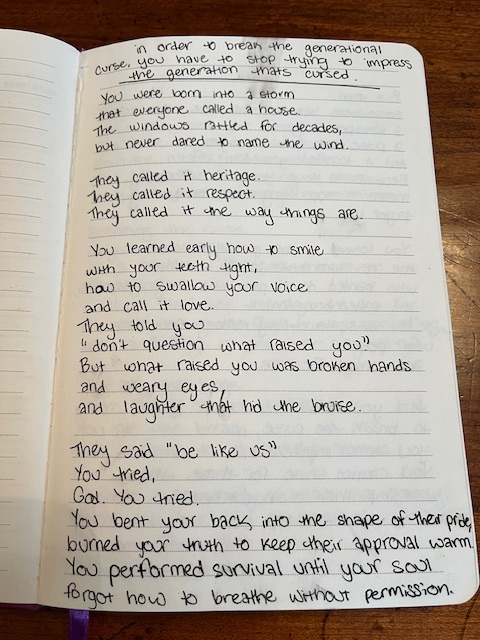 in order to break the generational
curse, you have to stop trying to impress
the generation thats cursed.
You were born into a storm
that everyone called a house.
The windows rattled for decades,
but never dared to name the wind.
They called it heritage.
They called it respect.
They called it the way things are.
You learned early how to smile
with your teeth tight,
how to swallow your voice
and call it love.
They told you
"don't question what raised you"
But what raised you was broken hands
and weary eyes,
and laughter that hid the bruise.
They said "be like us"
You tried,
God. You tried.
You bent your back into the shape of their pride,
burned your truth to keep their approval warm.
You performed survival until your soul
forgot how to breathe without permission.